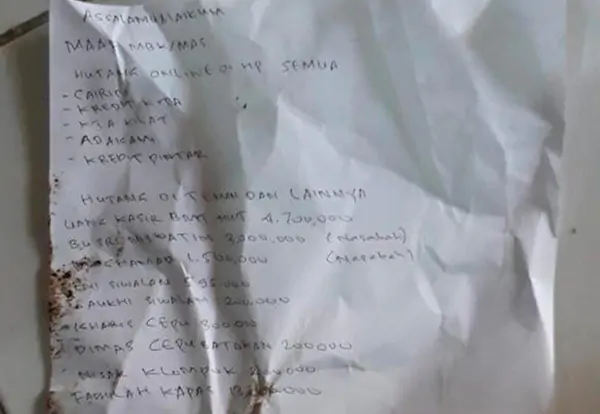 ASSALAMUALAIKUM
MAAF MBK/MAS
HUTANG ONLINE DI HP SEMUA
- CAIRIN
- KREDIT KITA
- KTA KILAT
- ADAKAMI
- KREDIT PINTAR
HUTANG DI TEMAN DAN LAINNYA
UANG KASIR 4.700,000
3.000.000 (Nasabah)
1.500,000 (Nasabah)
SIWALAN
SIWALAN 200,000
KHARIS CEPU
DIMAS CEPU 200,000
KLOMPOK
FADILAH KAPAS